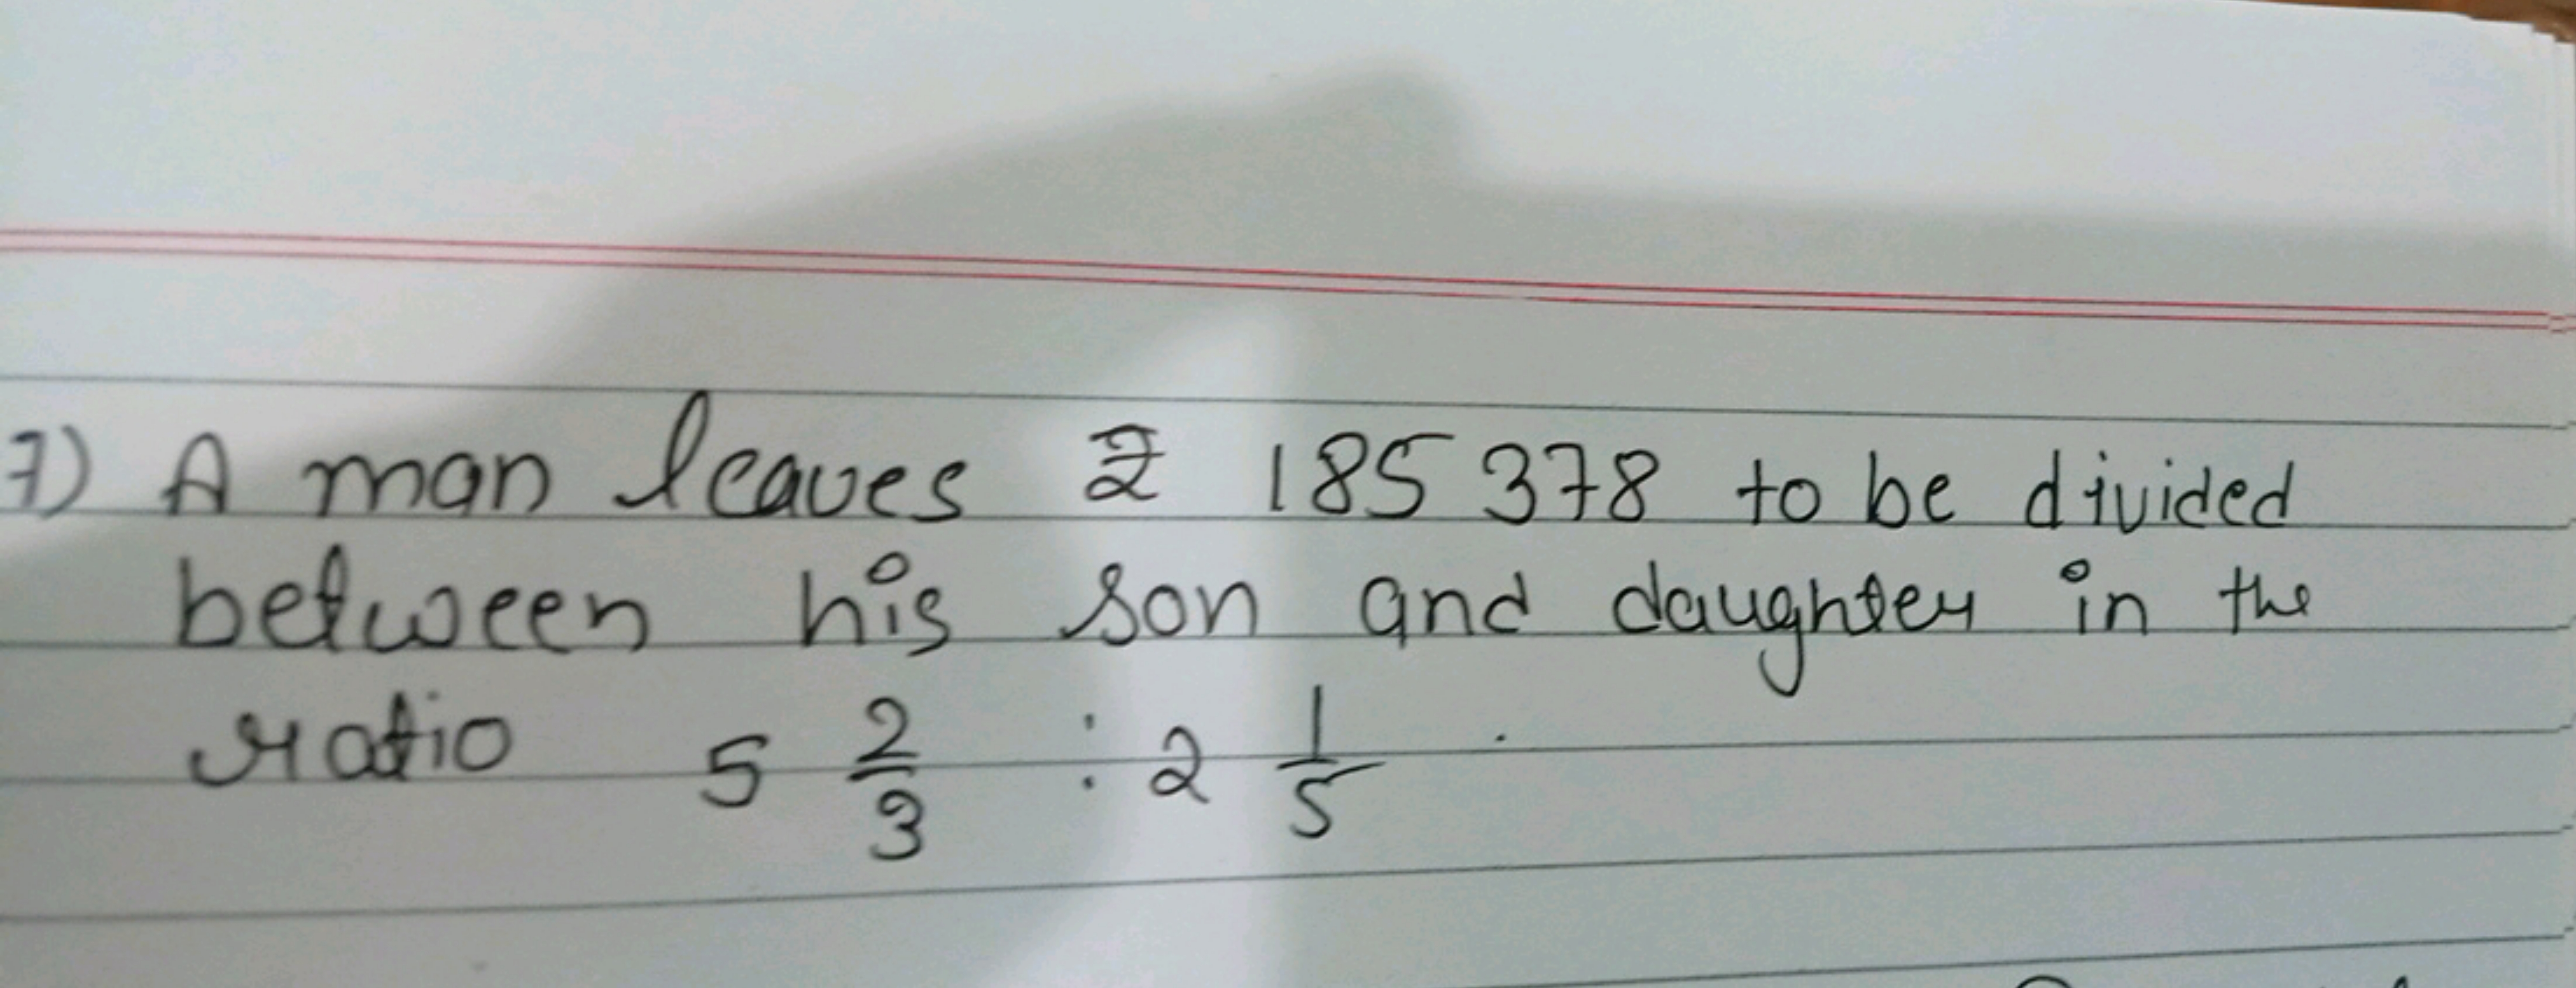 7) A man leaves ₹ 185 378 to be divided
between his son and daughter in the
ratio 5 2/3 : 2 1/5 .